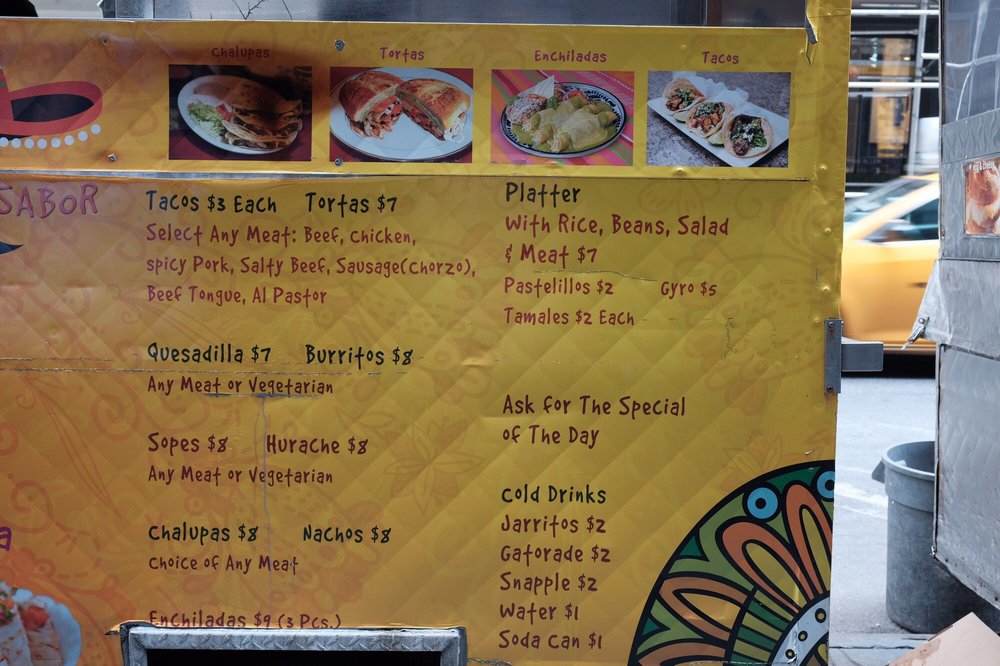 Chalupas
Tortas
Enchiladas
Tacos
SABOR
Tacos $3 Each Tortas $7
Select Any Meat: Beef, Chicken,
Spicy Pork, Salty Beef, Sausage(Chorzo),
Beef Tongue, Al Pastor
Quesadilla $7 Burritos $8
Any Meat or Vegetarian
Sopes $8 Hurache $8
Any Meat or Vegetarian
Chalupas $8 Nachos $8
Choice of Any Meat
Enchiladas $9 (3 Pcs.)
Platter
With Rice, Beans, Salad
& Meat $7
Pastelillos $2 Gyro $5
Tamales $2 Each
Ask for The Special
of The Day
Cold Drinks
Jarritos $2
Gatorade $2
Snapple $2
Water $1
Soda Can $1